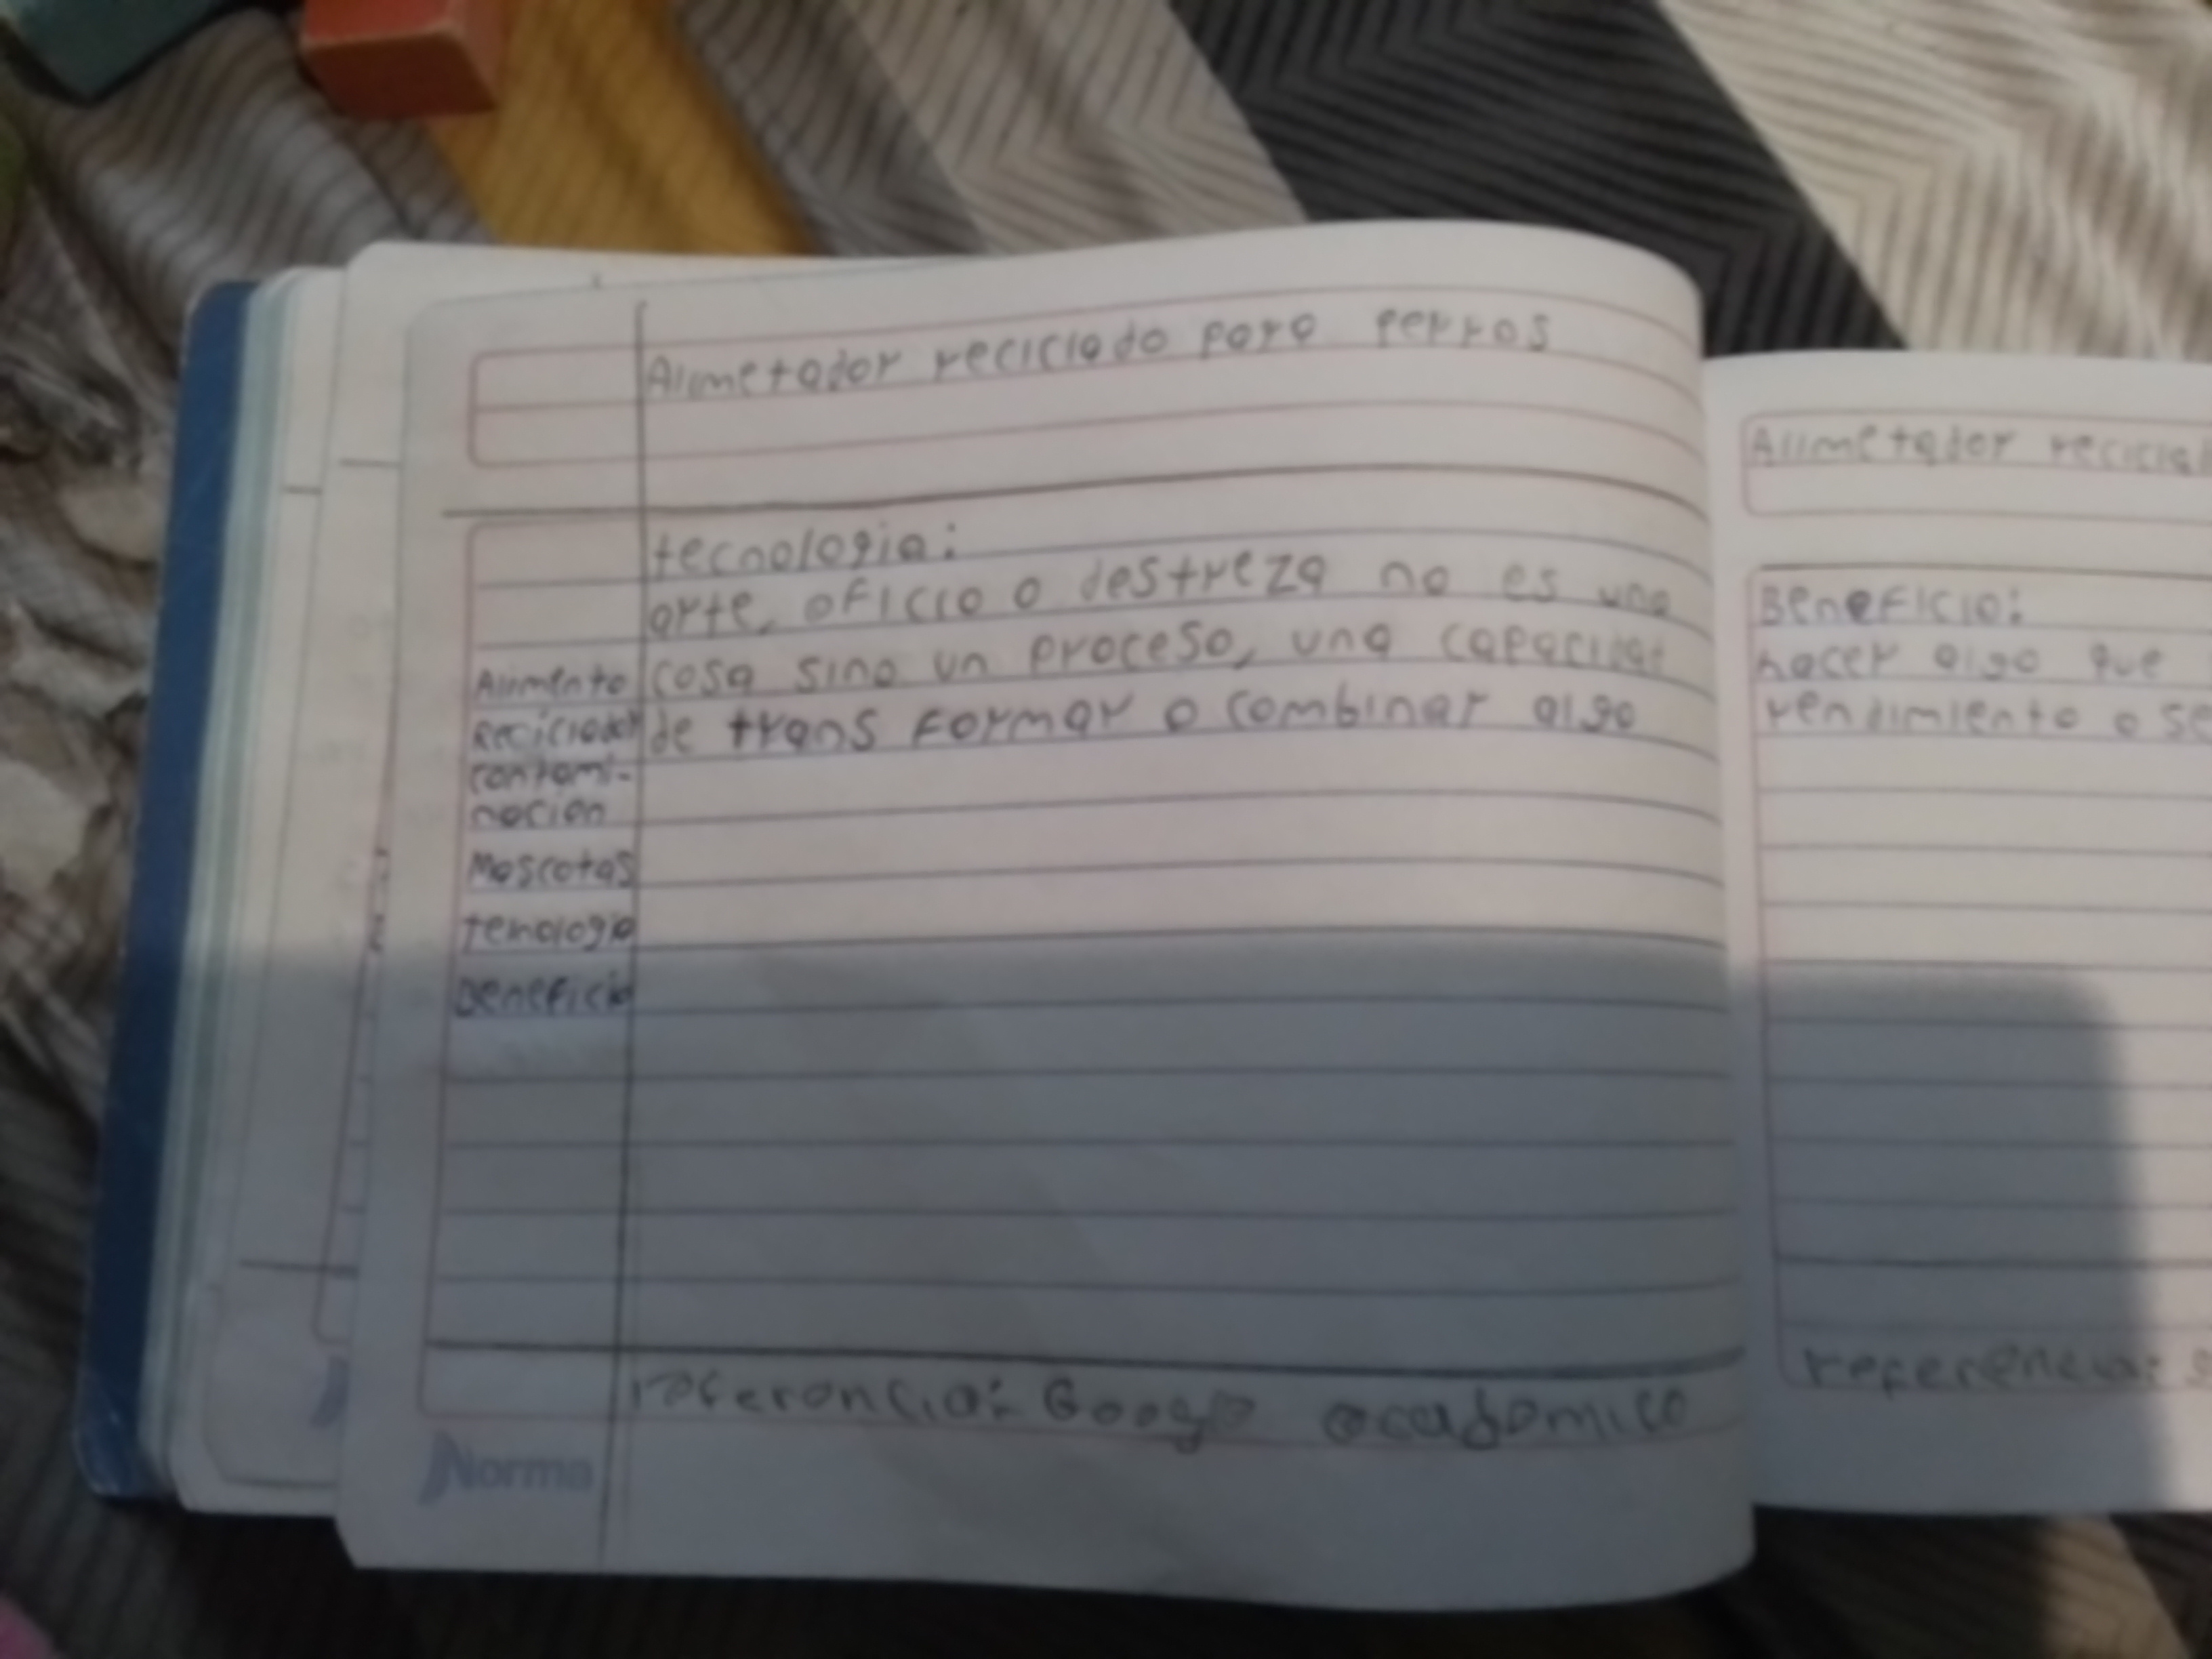 Alimetador reciclado para perros
tecnologia:
arte, oficio o destreza no es una
cosa sino un proceso, una capacidad
de trans formar o combinar algo
Alimento
Reciclador
contami-
nacion
Mascotas
tenologia
Beneficio
referencia: Google academico
Norma
Alimetador recicla
Beneficio:
hacer algo que
rendimiento o se
referencia: